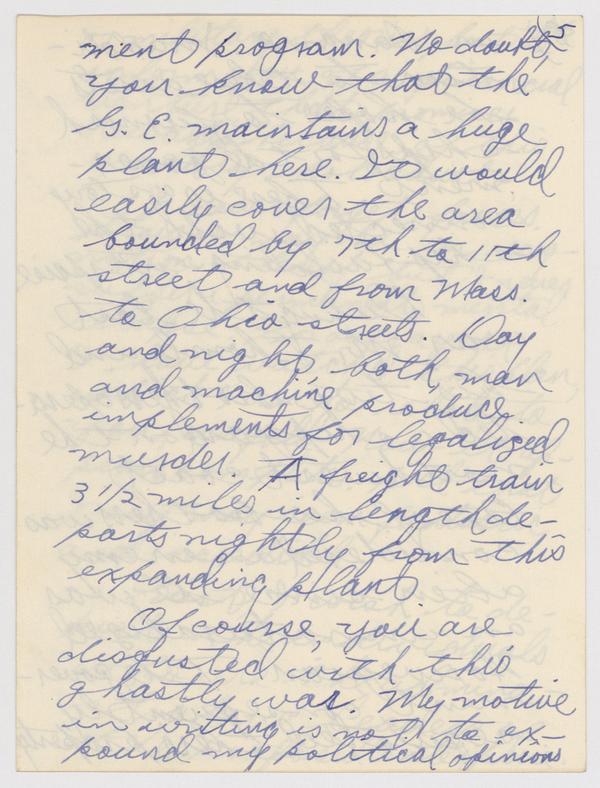 5
ment program. No doubt,
you know that the
G. E. maintains a huge
plant here. It would
easily cover the area
bounded by 7th to 11th
street and from Mass.
to Ohio streets. Day
and night, both, man
and machine produce
implements for legalized
murder. A freight train
3 1/2 miles in length de-
parts nightly from this
expanding plant.
Of course, you are
disgusted with this
ghastly war. My motive
in writing is not to ex-
pound my political opinions